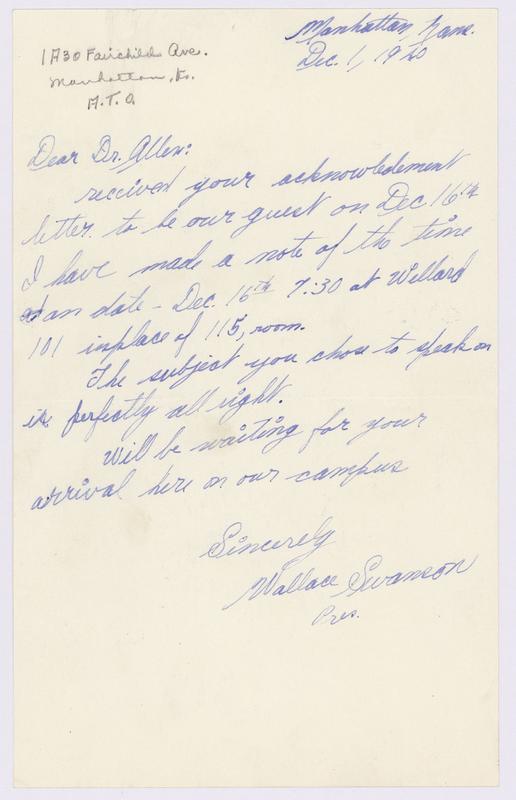 Manhattan, Kans.
Dec. 1, 1940
1430 Fairchild Ave.
Manhattan, Ks.
A.T.O.
Dear Dr. Allen:
received your acknowledement
letter. to be our guest on Dec 16th
I have made a note of th time
an date - Dec. 16th 7:30 at Willard
101 inplace of 115, room.
The subject you chose to speak on
is perfectly all right.
Will be waiting for your
arrival here on our campus
Sincerely
Wallace Swanson
Pres.